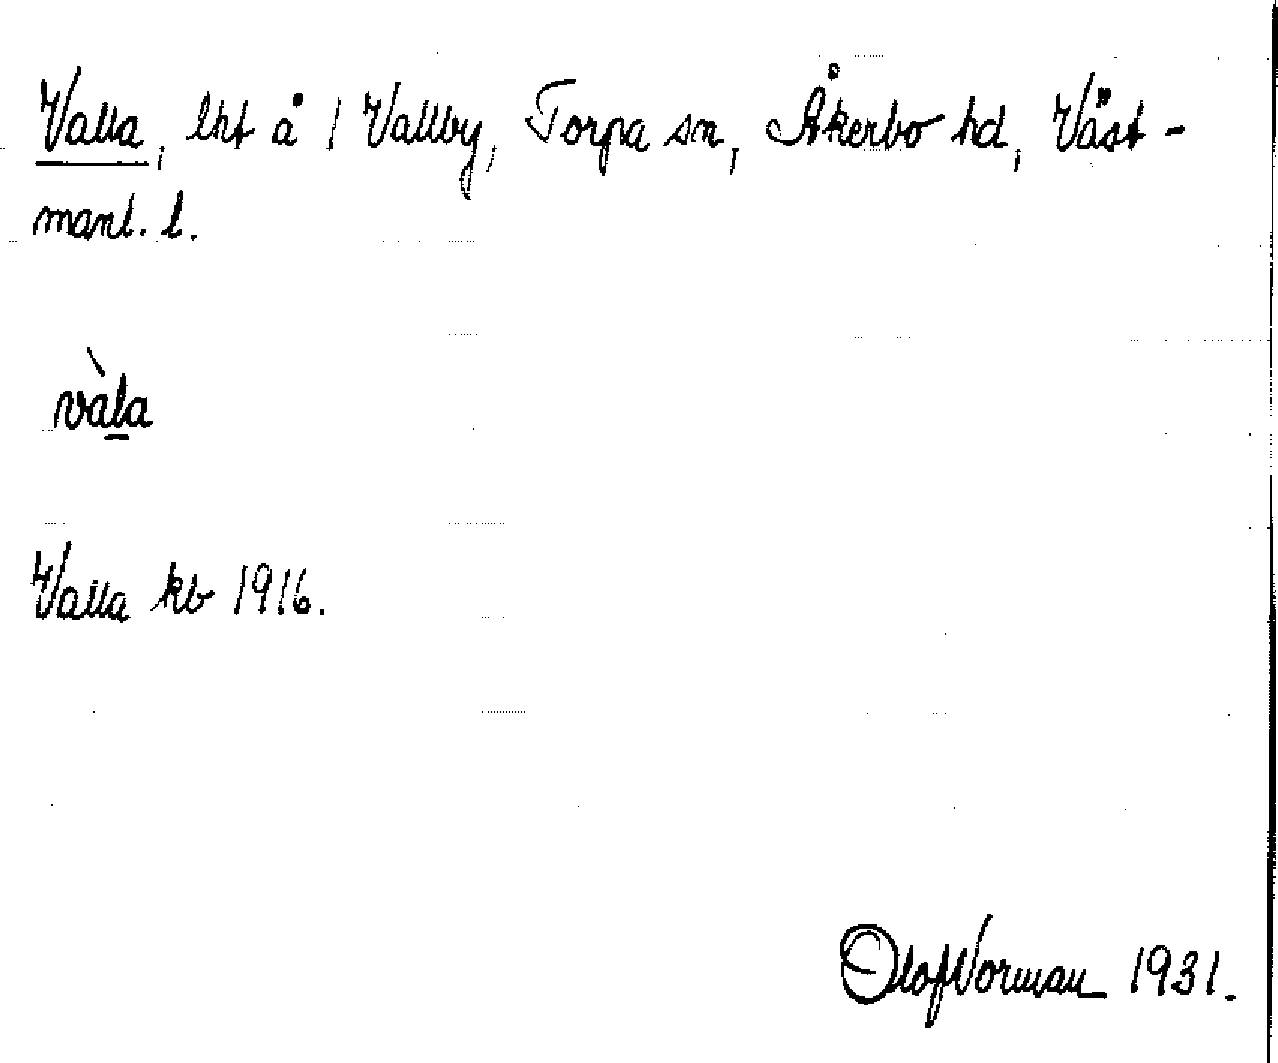 Valla, lht å 1 Vallby, Torpa sn, Åkerbo hd, Väst-
manl. l.
vàla
Valla kb 1916.
Olof Norman 1931.